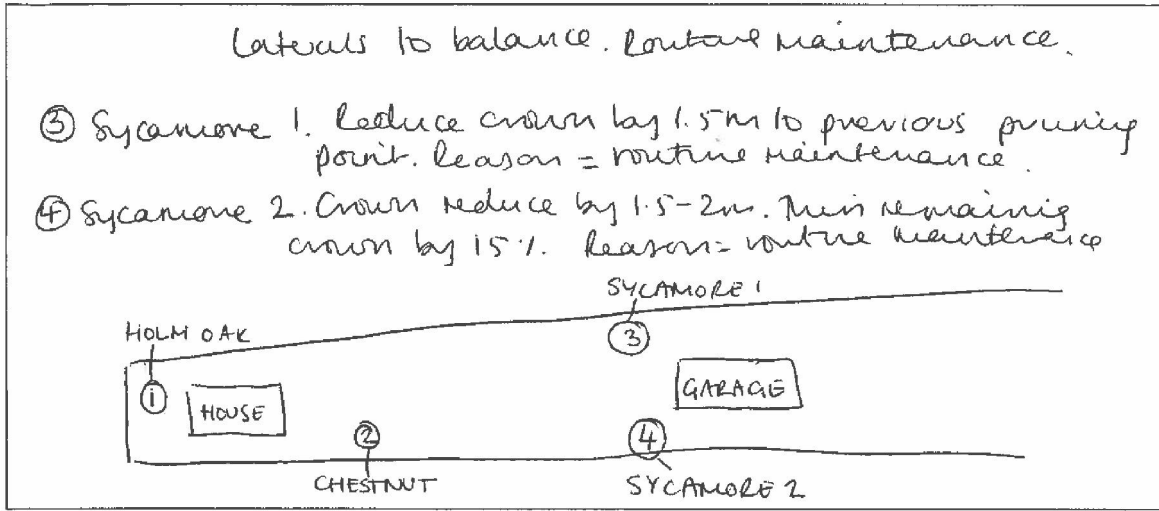 laterals to balance. Routine maintenance.
③ Sycamore 1. Reduce crown by 1.5m to previous pruning
point. Reason = routine maintenance.
④ Sycamore 2. Crown reduce by 1.5-2m. Thin remaining
crown by 15%. Reason = routine maintenance
SYCAMORE 1
HOLM OAK
③
① HOUSE
GARAGE
② ④
CHESTNUT
SYCAMORE 2